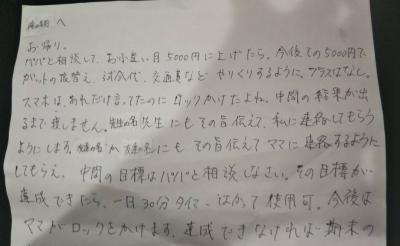 俺の名前 へ
お帰り。
パパと相談して、お小遣い月5000円に上げたら、今後その5000円で
ガットの張替え、試合代、交通費など やりくりするように。プラスはなし。
スマホは、あれだけ言ってたのにロックかけたよね。中間の結果が出
るまで渡しません。先生の名前 先生にもその旨伝えて、私に連絡してもらう
ようにします。友達の名前か友達の名前にもその旨伝えてママに連絡するように
してもらえ。中間の目標はパパと相談しなさい。その目標が
達成できたら、一日30分タイマーはかって使用可。今後は
ママがロックをかけます。達成できなければ期末の